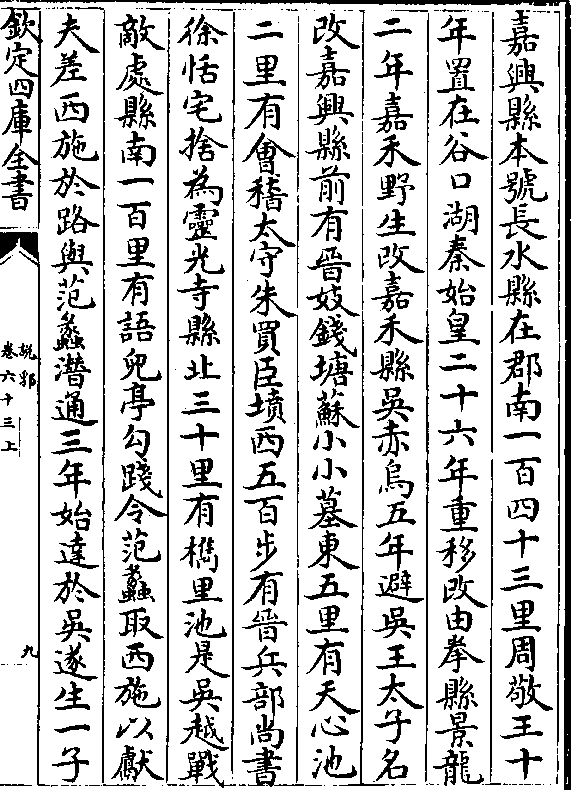 嘉興縣本號長水縣在郡南一百四十三里周敬王十
年置在谷口湖秦始皇二十六年重移改由拳縣景龍
二年嘉禾野生改嘉禾縣吳赤烏五年避吳王太子名
改嘉興縣前有晉妓錢塘蘇小小墓東五里有天心池
二里有會稽太守朱買臣墳西五百步有晉兵部尚書
徐恬宅捨為靈光寺縣北三十里有檇里池是吳越戰
敵處縣南一百里有語兒亭勾踐令范蠡取西施以獻
夫差西施於路與范蠡潛通三年始達於吳遂生一子
欽定四庫全書
說郛
卷六十三上
九